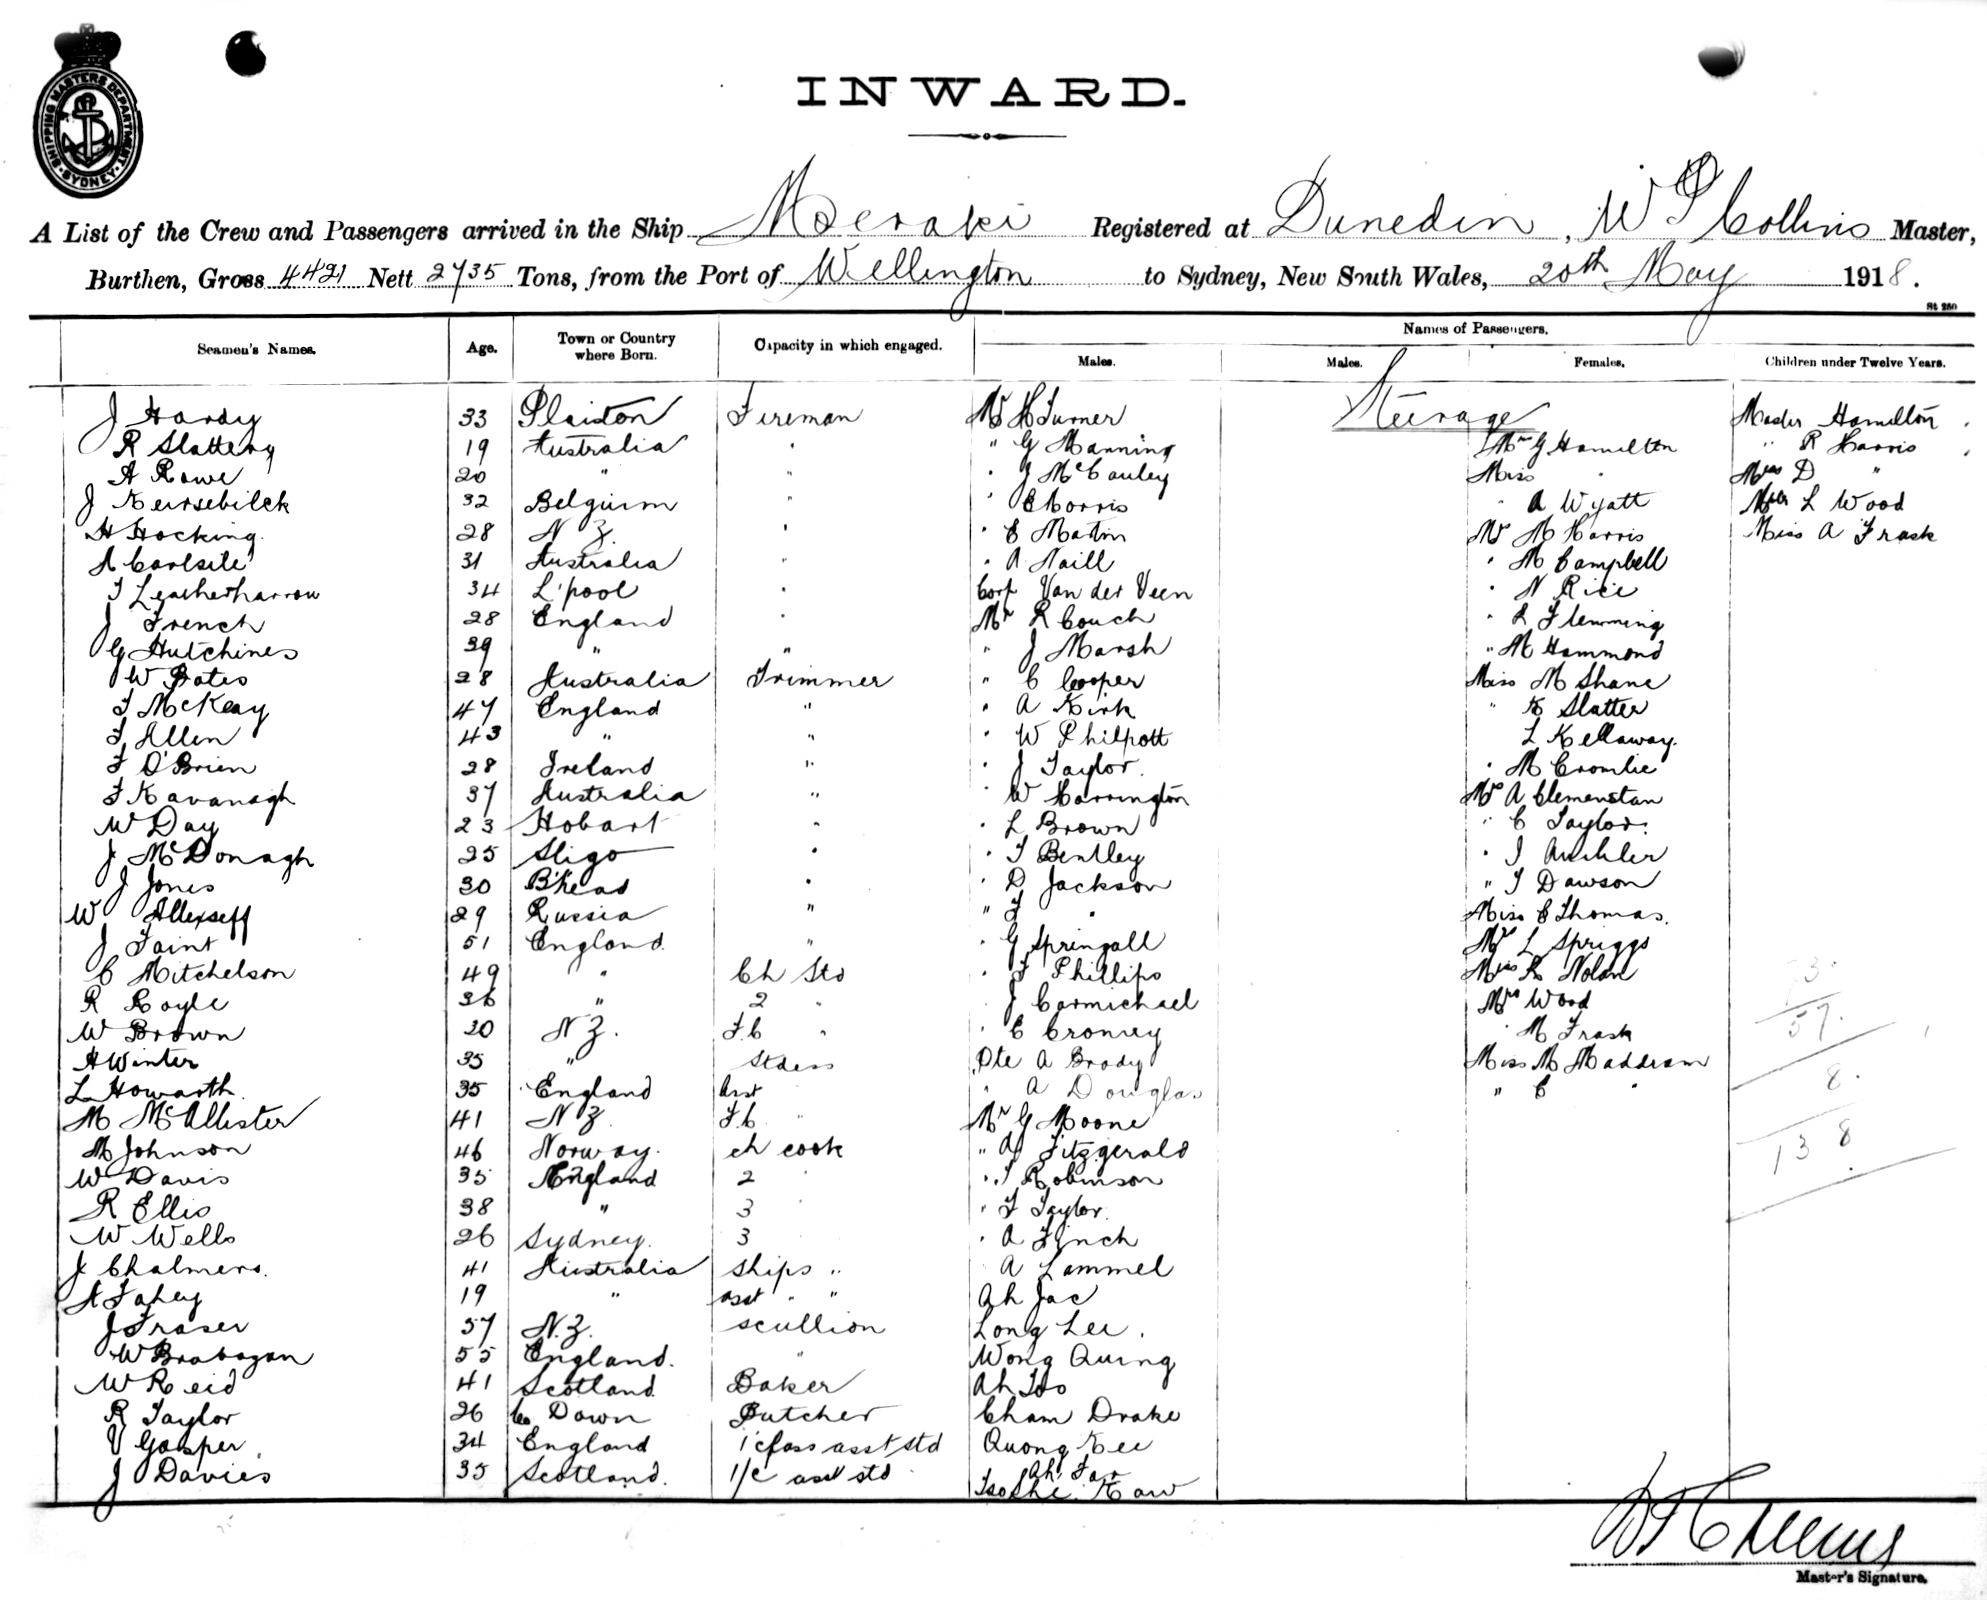 SHIPPING MASTERS DEPARTMENT
SYDNEY
INWARD.
A List of the Crew and Passengers arrived in the Ship Moeraki Registered at Dunedin, W P Collins Master,
Burthen, Gross 4421 Nett 2735 Tons, from the Port of Wellington to Sydney, New South Wales, 20th May 1918.
St 250
Names of Passengers.
Seamen's Names. Age. Town or Country where Born. Capacity in which engaged. Males. Males. Females. Children under Twelve Years.
Steerage
J Hardy 33 Plaiston Fireman Mr H Turner Master Hamilton
R Slattery 19 Australia " " G Manning Mrs G Hamilton " R Harris
A Rowe 20 " " " J McCauley Miss " Miss D "
J Keirsebilck 32 Belgium " " C Morris " A Wyatt L Wood
H Hocking 28 N Z. " " E Martin Mrs M Harris Miss A Frask
A Carlsile 31 Australia " " A Naill " M Campbell
T Leatherharrow 34 L'pool " Corp Van der Veen " N Rice
J French 28 England " Mr R Couch " L Flemming
G Hutchines 39 " " " J Marsh " M Hammond
W Bates 28 Australia Trimmer " C Cooper Miss M Shane
T McKeay 47 England " " A Kirk " K Slatter
T Allen 43 " " " W Philpott L Kellaway.
F O'Brien 28 Ireland " " J Taylor. " M Cromlie
F Kavanagh 37 Australia " " W Harrington Mrs A Clemenstan
W Day 23 Hobart " " L Brown " C Taylor.
J McDonagh 25 Sligo " " T Bentley " J
J Jones 30 B'head " " D Jackson " T Dawson
W Allexseff 29 Russia " " F " Miss E Thomas.
J Taint 51 England. " " G Springall Mrs L Spriggs
C Mitchelson 49 " Ch Std " F Phillips Miss R Nolan
R Royle 36 " 2 " " J Carmichael Mrs Wood
W Brown 30 N Z. F.C " " C Cromey " M Frask
A Winter 35 " Stdess Pte A Brody Miss M Maddism
L Howarth. 35 England Asst " A Douglas " C "
M McAllister 41 N Z F.C " Mr G Moone
M Johnson 46 Norway. ch cook " A Fitzgerald
W Davis 35 England 2 " " T Robinson
R Ellis 38 " 3 " F Taylor.
W Wells 26 Sydney. 3 " A Lynch
J Chalmers. 41 Australia Ships " A Lammel
A Fahey 19 " asst " " Ah Jac
J Fraser 57 N.Z. scullion Long Lee.
W Brabazon 55 England. " Wong Quing
W Reid 41 Scotland Baker Ah Too
R Taylor 26 Co Down Butcher Cham Drake
V Gasper. 34 England 1 class asst std Quong Kee
J Davies 35 Scotland. 1/c asst std Ah Far
Kaw
57.
8.
138
Master's Signature.